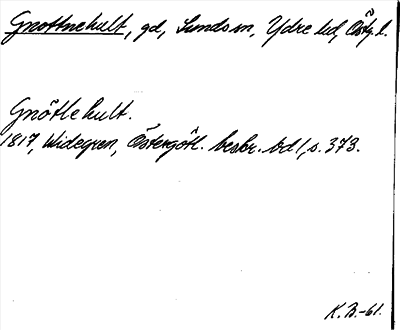 Gnottnehult, gd, Sunds sn, Ydre hd, Östg. l.
Gnöttlehult.
1817, Widegren, Östergötl. beskr. bd 1, s. 373.
K. B. -61.